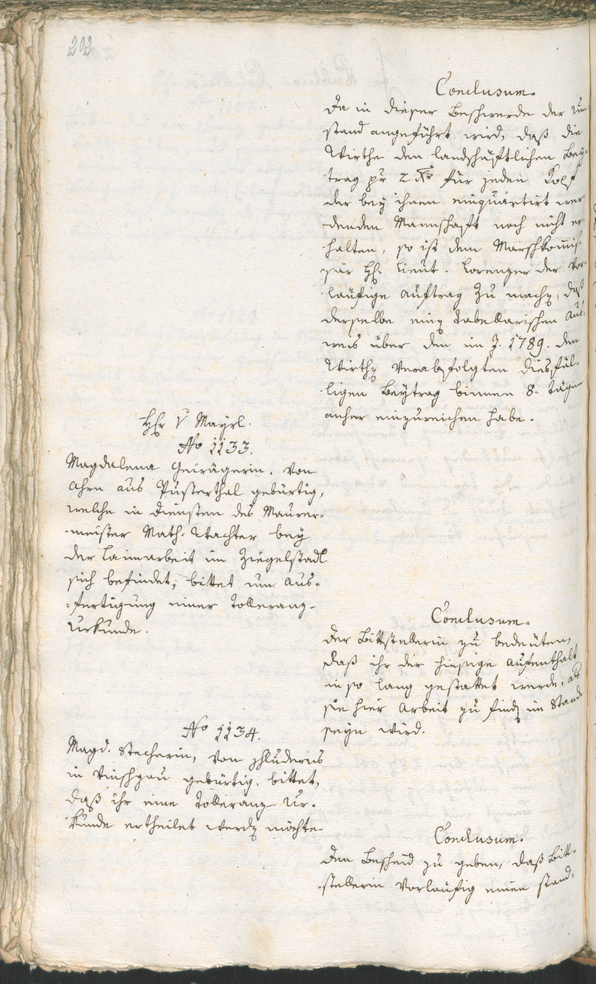 202
Conclusum.
Da in dieser Beschwerde der Um-
stand angeführt wird, daß die
Wirthe den landschäftlichen Bey-
trag pr 2 Xr für jeden Kopf
der bey ihnen einquartirt wer-
denden Mannschaft noch nicht er-
halten, so ist dem Marschkomis-
sär Hh. Lieut. Lorenzer der vor-
läufige Auftrag zu machen, daß
derselbe einen tabellarischen Aus-
weis über den im J. 1789. den
Wirthen verabfolgten diesfäl-
ligen Beytrag binnen 8. tägen
anher einzureichen habe.
Hhr v Mayrl.
No 1133.
Magdalena Geirägerin. von
Ahrn aus Pusterthal gebürtig,
welche in diensten des Maurer-
meister Math. Wachter bey
der Laimarbeit im Ziegelstadl
sich befindet, bittet um Aus-
fertigung einer Tolleranz-
Urkunde.
Conclusum.
Der Bittstellerin zu bedeuten,
daß ihr der hiesige Aufenthalt
in so lang gestattet werde, als
sie hier Arbeit zu finden im Stande
seyn wird.
No 1134.
Magd. Stecherin, von Schluderns
in Vinschgau gebürtig, bittet,
daß ihr eine Tolleranz Ur-
kunde ertheilet werden möchte.
Conclusum.
Den Bescheid zu geben, daß Bitt-
stellerin vorläufig einen stand-